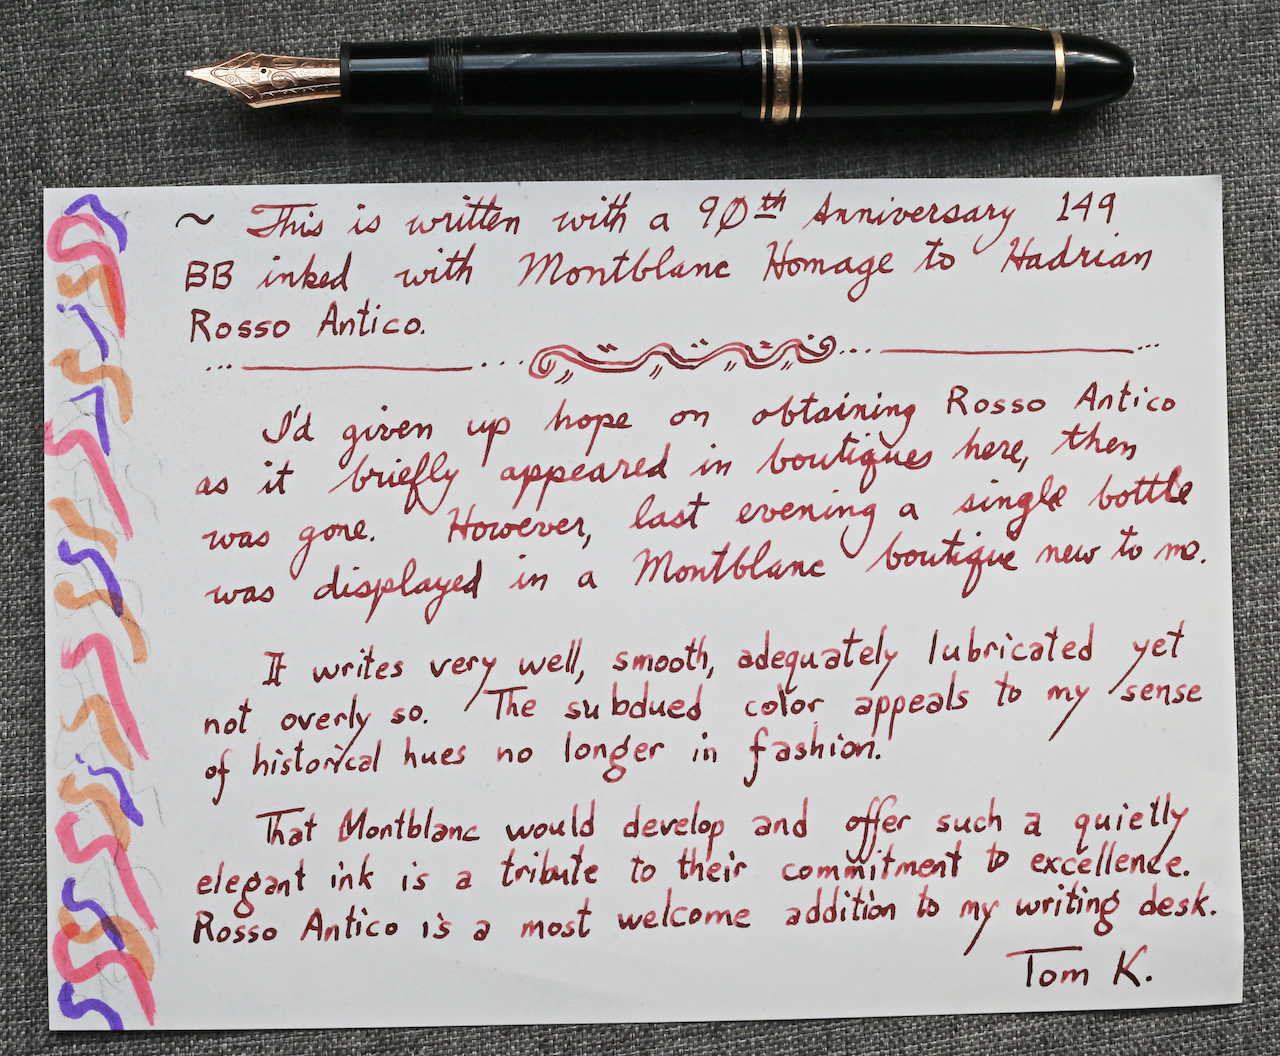 ~ This is written with a 90th Anniversary 149
BB inked with Montblanc Homage to Hadrian
Rosso Antico.
I'd given up hope on obtaining Rosso Antico
as it briefly appeared in boutiques here, then
was gone. However, last evening a single bottle
was displayed in a Montblanc boutique new to me.
It writes very well, smooth, adequately lubricated yet
not overly so. The subdued color appeals to my sense
of historical hues no longer in fashion.
That Montblanc would develop and offer such a quietly
elegant ink is a tribute to their commitment to excellence.
Rosso Antico is a most welcome addition to my writing desk.
Tom K.